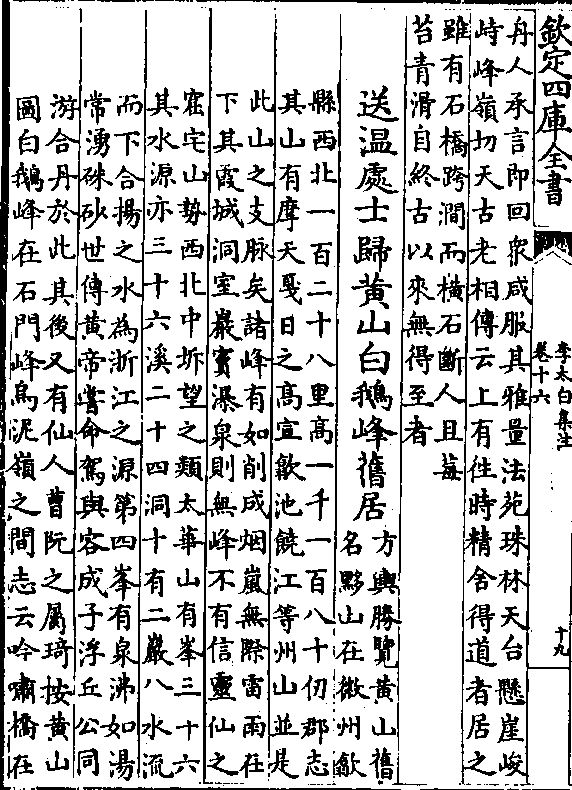 欽定四庫全書
李太白集注
卷十六
十九
丹人承言即回衆咸服其雅量法苑珠林天台懸崖峻
峙峰嶺切天古老相傳云上有佳時精舍得道者居之
雖有石橋跨澗而横石斷人且莓
苔青滑自終古以來無得至者
送温處士歸黃山白鵝峰舊居
方輿勝覽黃山舊
名黟山在徽州歙
縣西北一百二十八里高一千一百八十仞郡志
其山有摩天戞日之髙宣歙池饒江等州山並是
此山之支脉矣諸峰有如削成烟嵐無際雷雨在
下其霞城洞室巖竇瀑泉則無峰不有信靈仙之
窟宅山勢西北中坼望之類太華山有峯三十六
其水源亦三十六溪二十四洞十有二巖八水流
而下合揚之水為浙江之源第四峯有泉沸如湯
常湧硃砂世傳黃帝嘗命駕與容成子浮丘公同
游合丹於此其後又有仙人曹阮之屬琦按黃山
圖白鵝峰在石門峰烏泥嶺之間志云吟嘯橋在